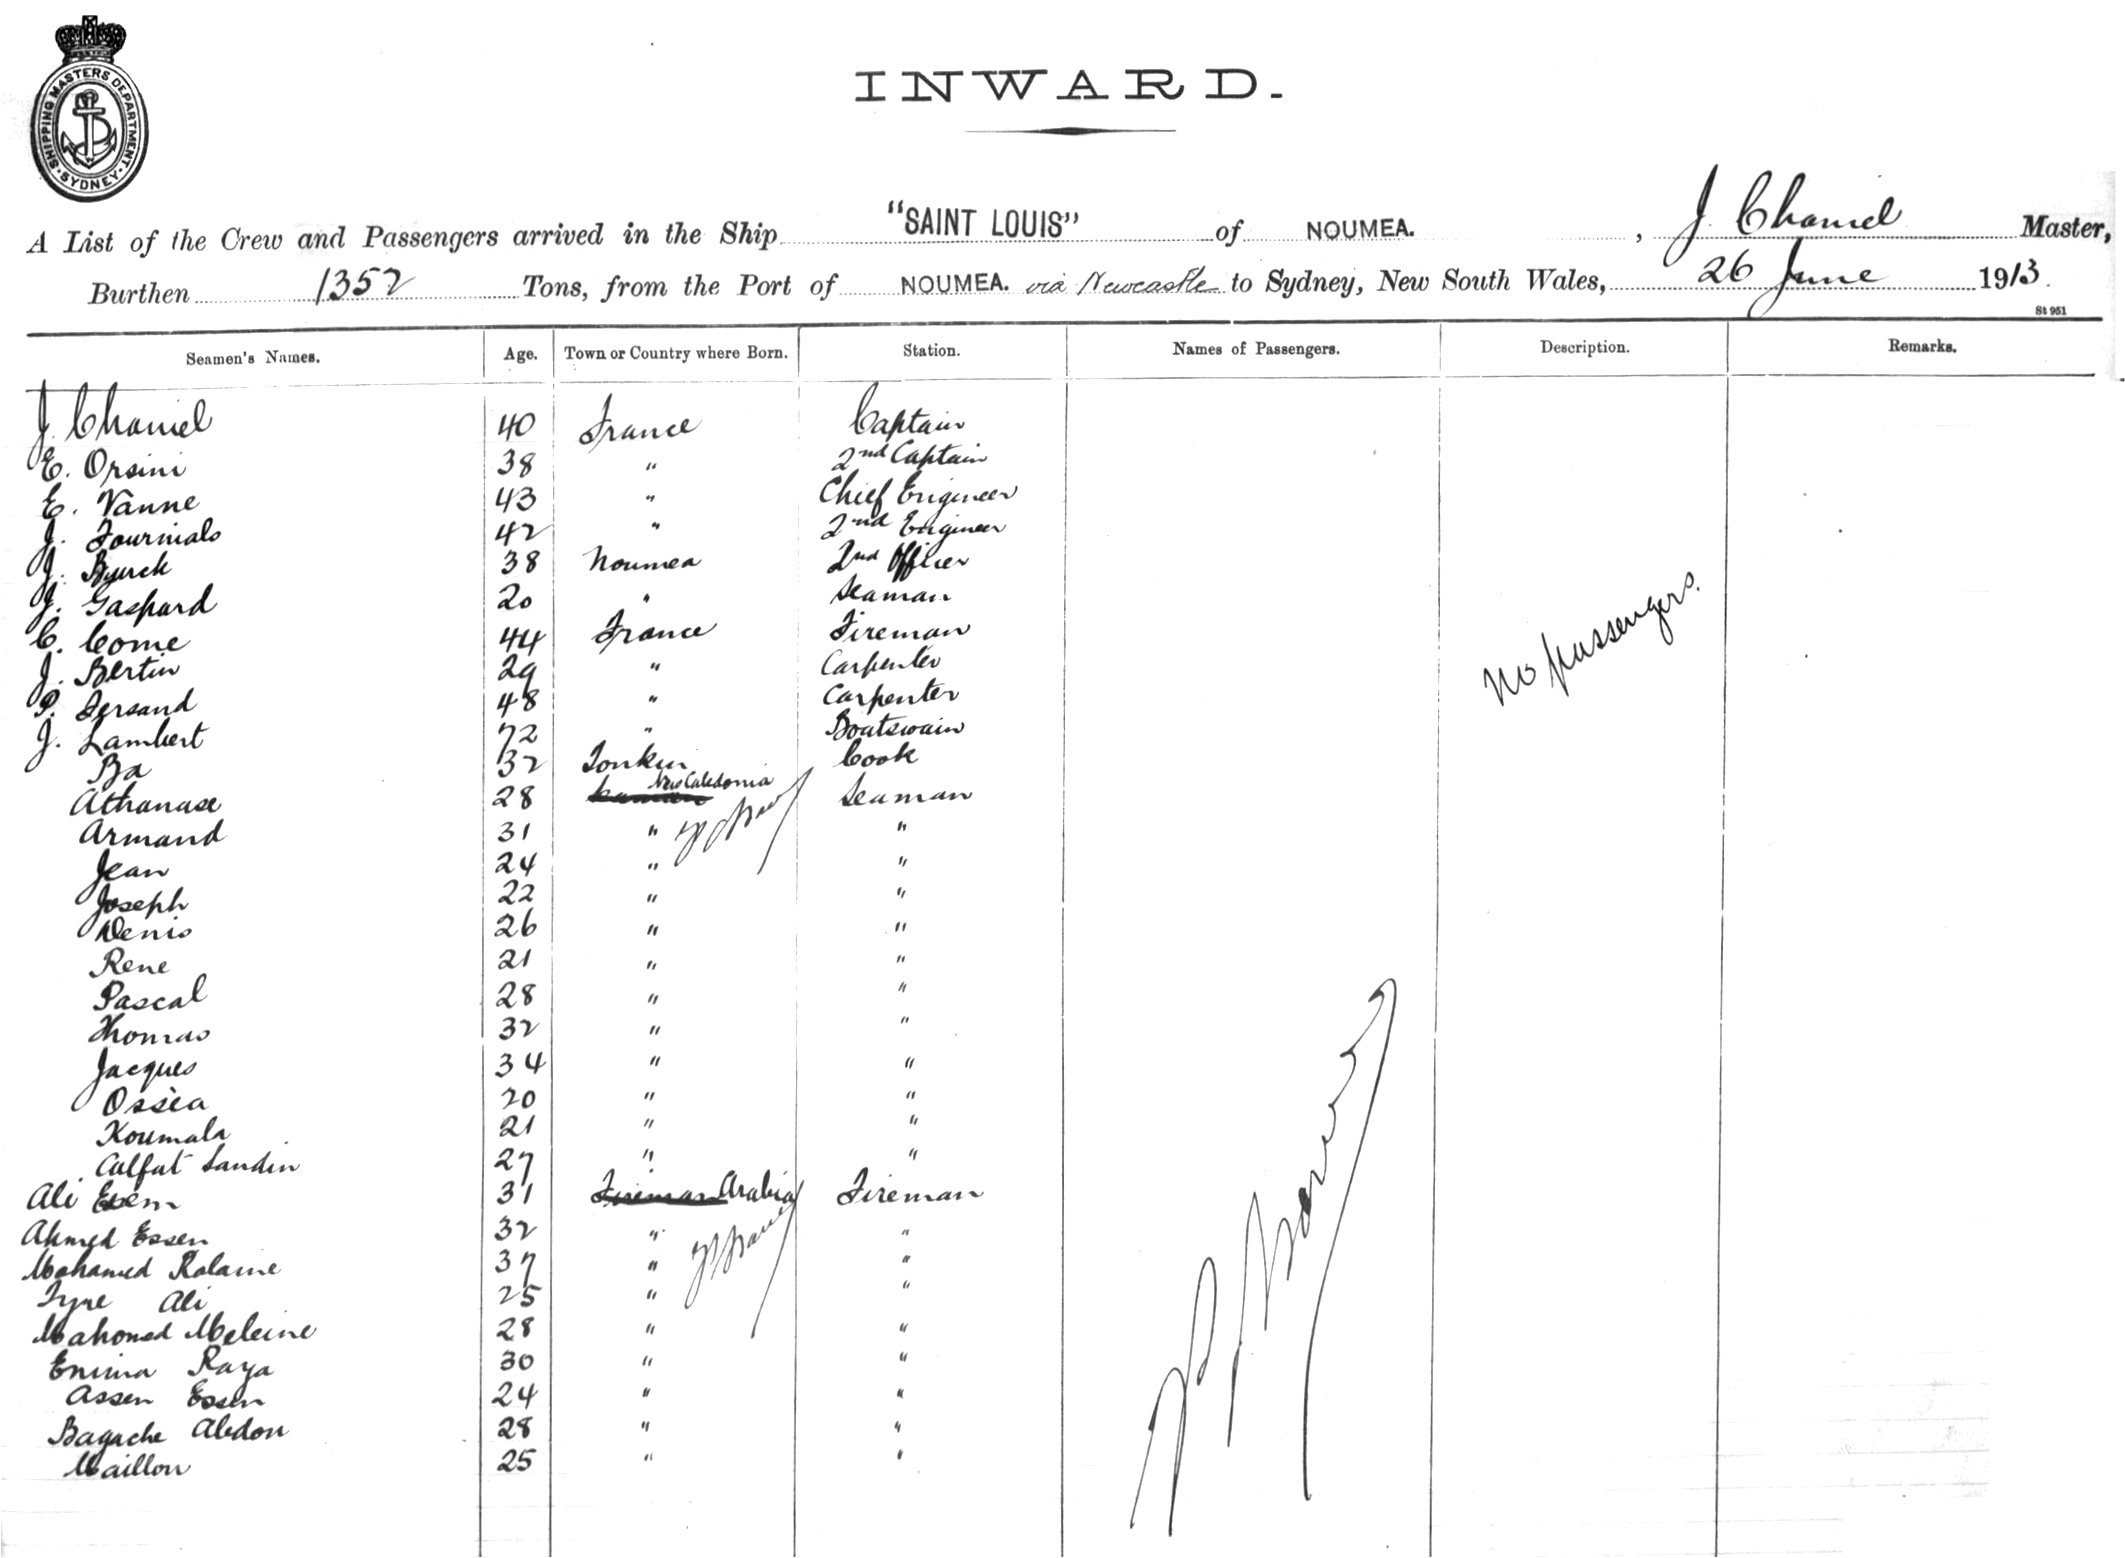 SHIPPING MASTERS DEPARTMENT. SYDNEY
INWARD.
A List of the Crew and Passengers arrived in the Ship "SAINT LOUIS" of NOUMEA. , J Chaniel Master,
Burthen 1352 Tons, from the Port of NOUMEA. via Newcastle to Sydney, New South Wales, 26 June 1913.
St 951
Seamen's Names. Age. Town or Country where Born. Station. Names of Passengers. Description. Remarks.
J. Chaniel 40 France Captain
E. Orsini 38 " 2nd Captain
E. Vanne 43 " Chief Engineer
J. Fournials 42 " 2nd Engineer
J. 38 Noumea 2nd Officer
J. Gaspard 20 " Seaman
C. Come 44 France Fireman
J. Bertin 29 " Carpenter
P. Fersand 48 " Carpenter
J. Lambert 72 " Boatswain
Ba 32 Tonkin Cook
Athanase 28 New Caledonia Seaman
Armand 31 " "
Jean 24 " "
Joseph 22 " "
Denis 26 " "
Rene 21 " "
Pascal 28 " "
Thomas 32 " "
Jacques 34 " "
Ossea 20 " "
Koumala 21 " "
Calfat Sandin 27 " "
Ali Esem 31 Fireman Arabia Fireman
Ahmed Essen 32 " "
Mohamed Ralaine 37 " "
Fyre Ali 25 " "
Mahomed Meleine 28 " "
Enima Raya 30 " "
Assen Essen 24 " "
Bagache Abdon 28 " "
Maillon 25 " "
No passengers.